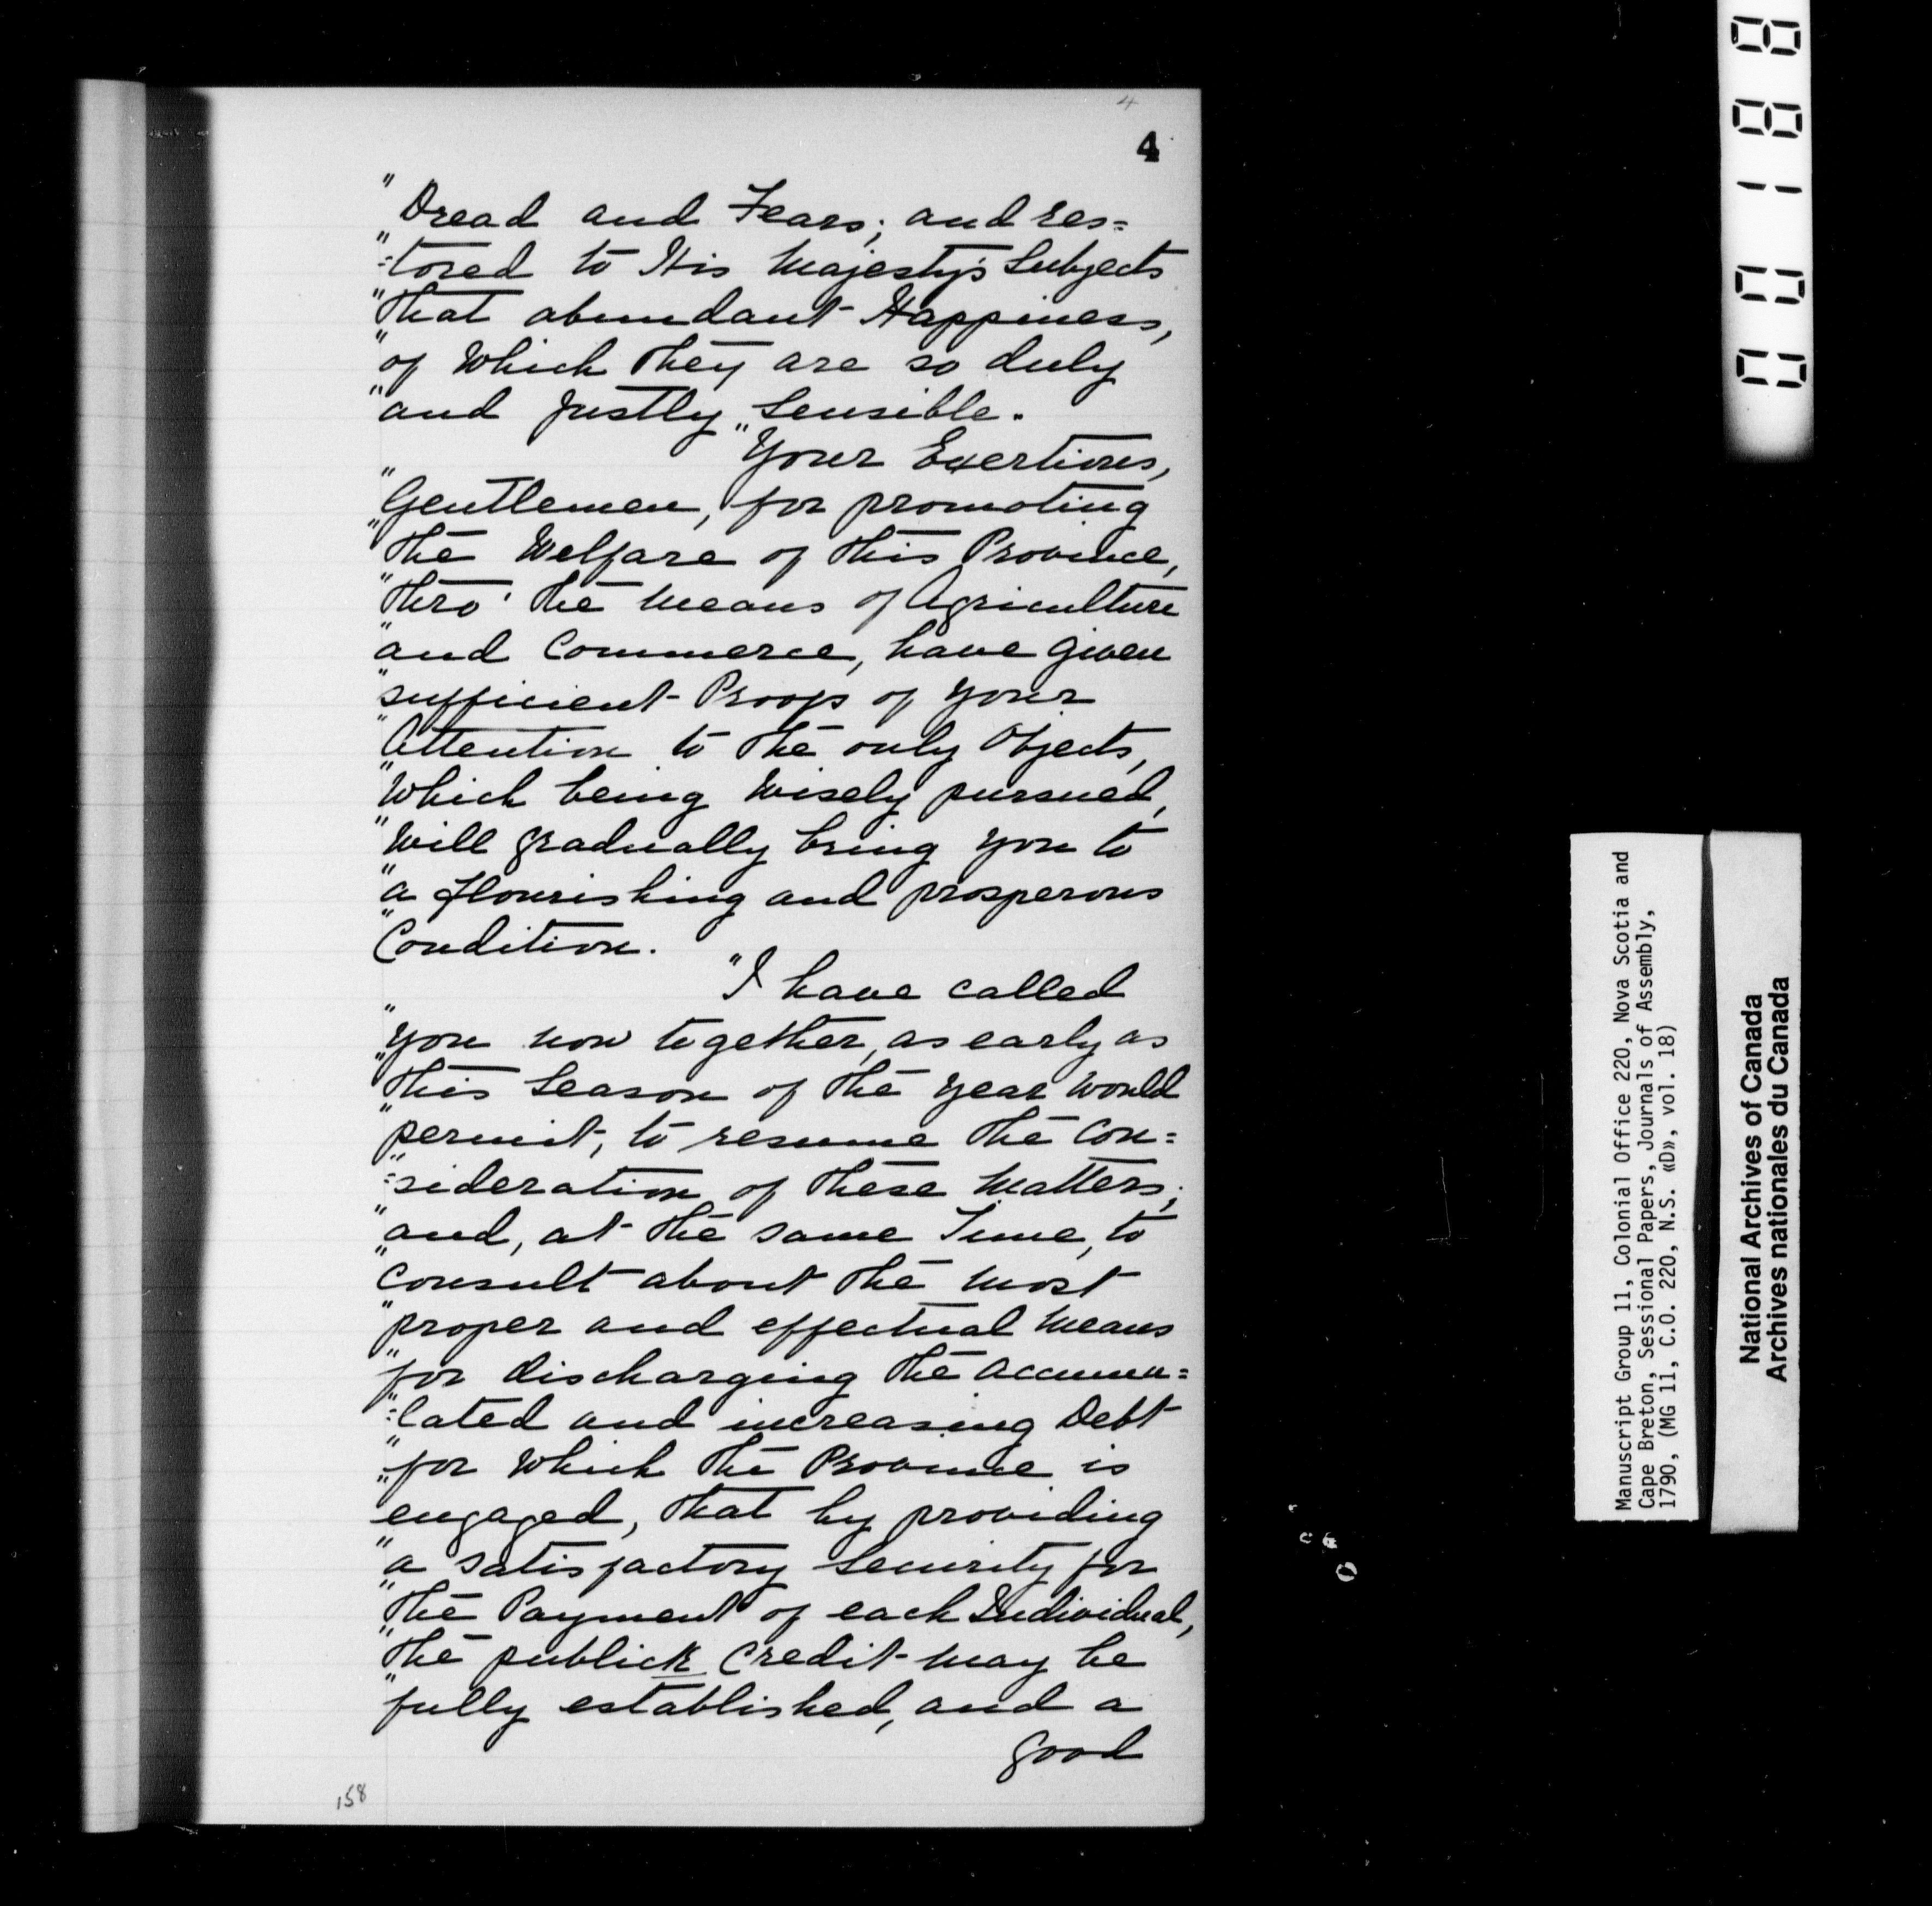 4
4
"Dread and Fears; and res=
"=tored to His Majesty's Subjects
"that abundant Happiness,
"of Which they are so duly
"and justly Sensible.
"Your Exertions,
"Gentlemen, for promoting
"the Welfare of this Province,
"thro' the Means of Agriculture
"and Commerce, have given
"sufficient Proofs of your
"Attention to the only Objects,
"Which being Wisely pursued,
"Will gradually bring you to
"a flourishing and prosperous
"Condition.
"I have called
"you now together, as early as
"this Season of the year Would
"permit, to resume the Con=
"=sideration of these Matters;
"and, at the same Time, to
"consult about the Most
"proper and effectual Means
"for discharging the accumu=
"=lated and increasing Debt
"for Which the Province is
"engaged, that by providing
"a satisfactory Security for
"the Payment of each Individual,
"the publick Credit may be
"fully established, and a
good
158
00188
Manuscript Group 11, Colonial Office 220, Nova Scotia and
Cape Breton, Sessional Papers, Journals of Assembly,
1790, (MG 11, C.O. 220, N.S. «D», vol. 18)
National Archives of Canada
Archives nationales du Canada